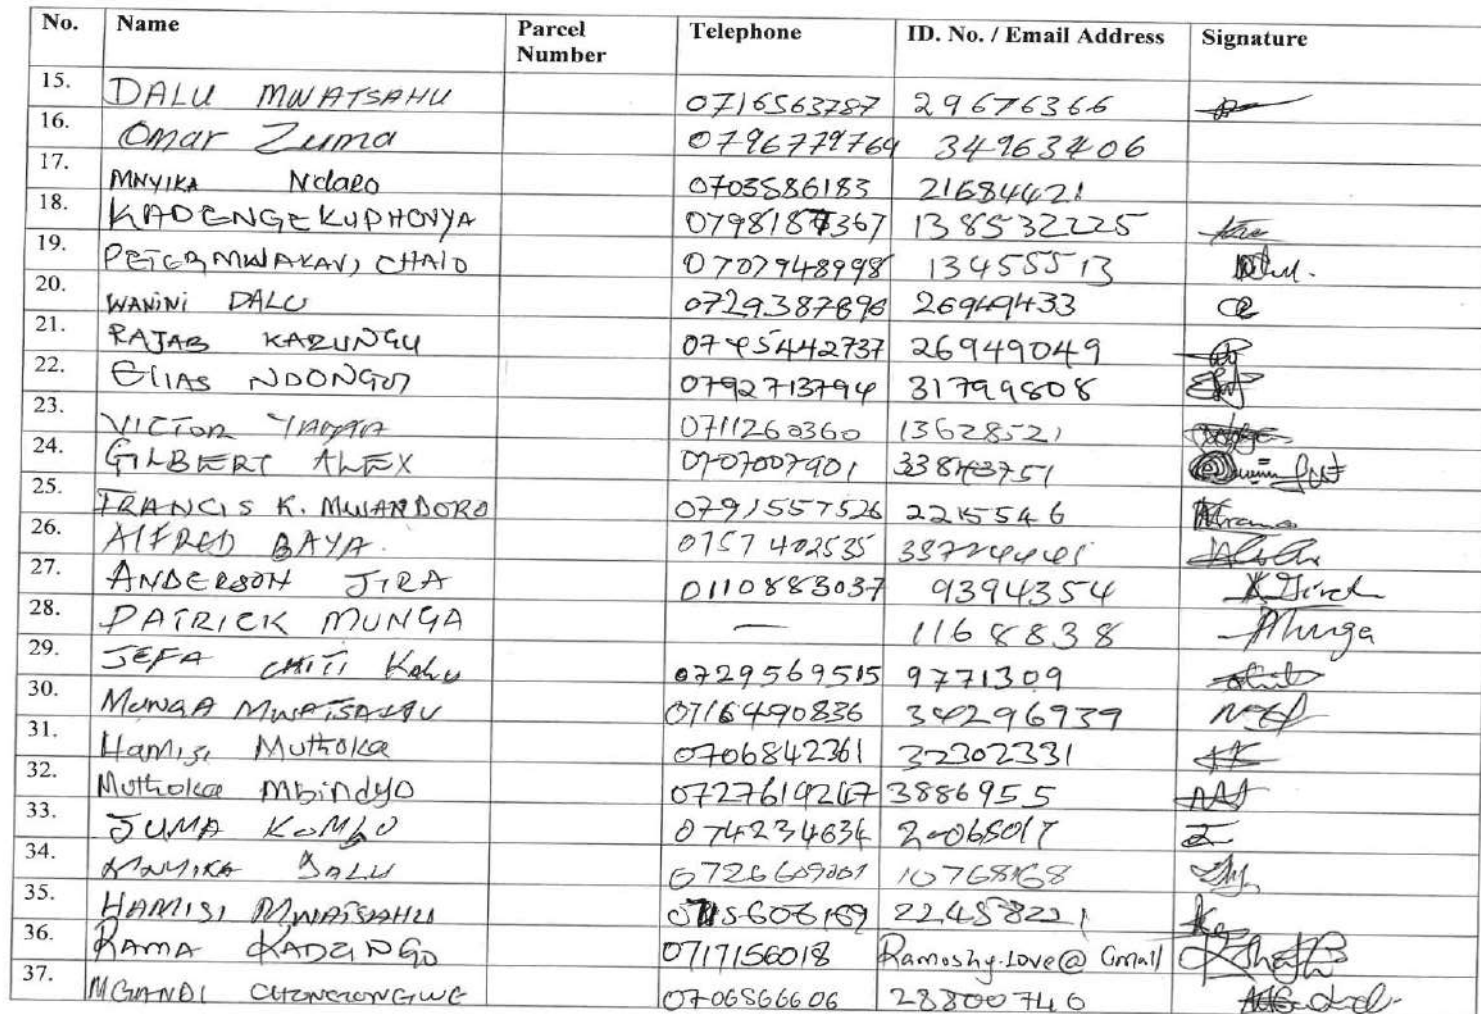 No. Name Parcel Number Telephone ID. No. / Email Address Signature
15. DALU MWATSAHU 0716563787 29676366
16. Omar Zuma 0796779764 34963406
17. MNYIKA Ndaro 0703586183 21684421
18. KADENGE KUPHONYA 0798187367 138532225
19. PETER MWAKAVI CHAIO 0707948998 13455513
20. WANINI DALU 0729387896 26949433
21. RAJAB KAZUNGU 0745442737 26949049
22. ELIAS NDONGO 0792713794 31799808
23. VICTOR 0711260360 13628521
24. GILBERT ALEX 0707007901 33843751
25. FRANCIS K. MWANDORO 0791557526 2215546
26. ALFRED BAYA. 0757402535
27. ANDERSON JIRA 0110883037 9394354
28. PATRICK MUNGA — 1168838 PMunga
29. JEFA CHITI Kalu 0729569515 9771309
30. MUNGA MWATSAHU 0716490836 34296939
31. Hamisi Muthoka 0706842361 32302331
32. Muthoka Mbindyo 0727619247 3886955
33. JUMA KOMBO 074234634 20065017
34. MNYIKA DALU 0726609001 10768168
35. HAMISI MWATSAHU 0715606169 22458221
36. RAMA KADZINGO 0717156018 Ramoshy.Love@Gmail
37. MGANDI CHONGONGWE 0706566606 28800746